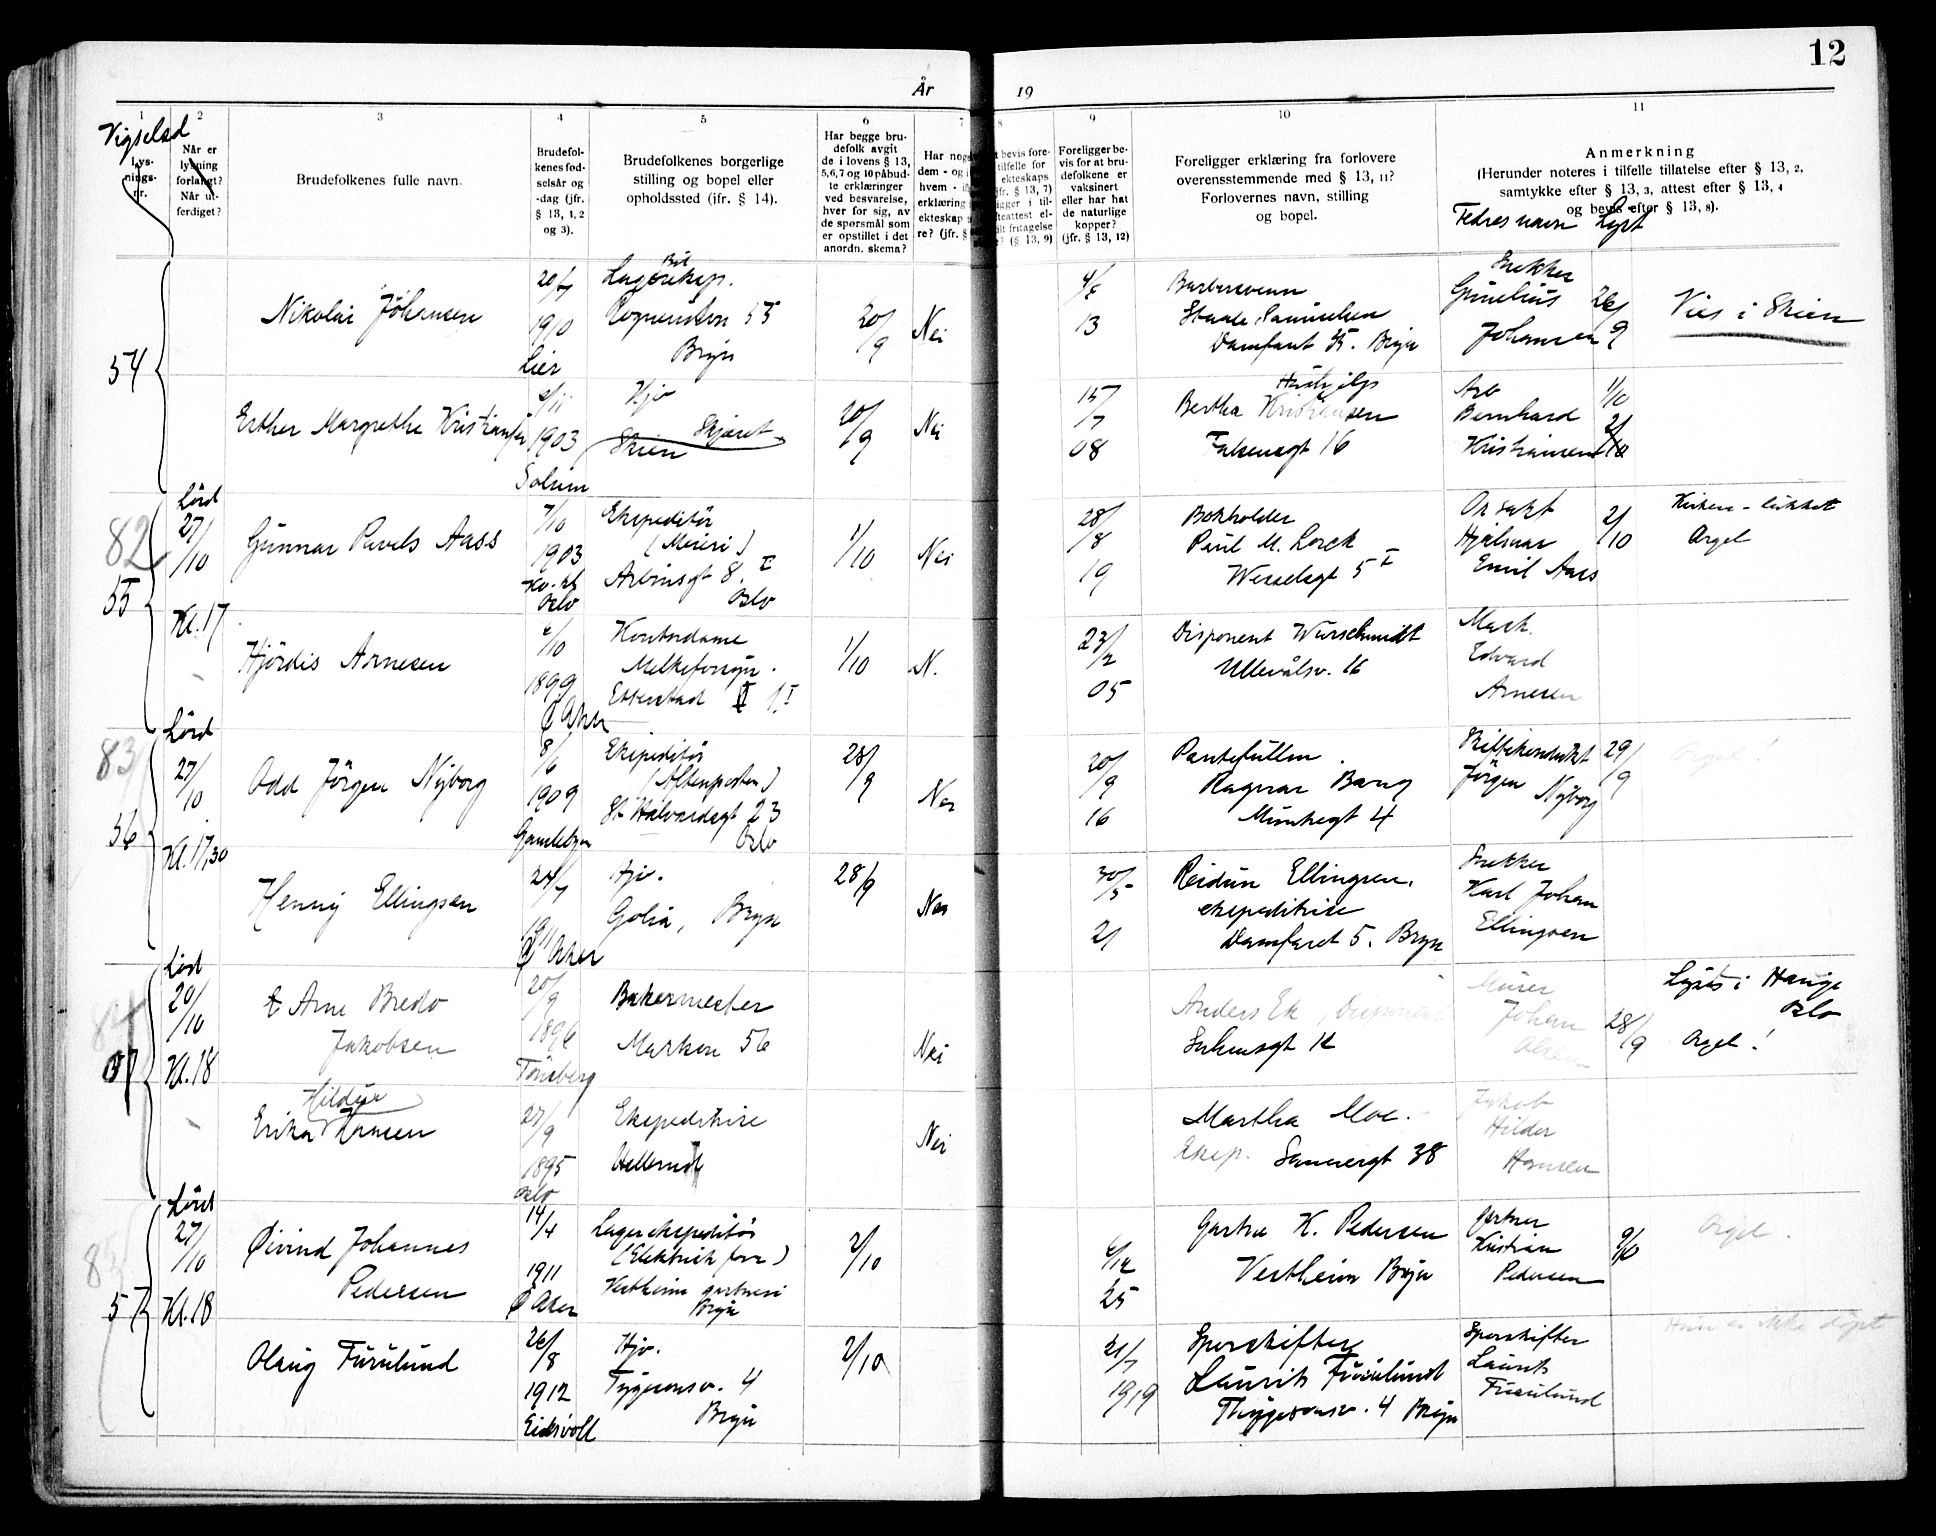 12
År 19
1 2 3 4 5 6 7 8 9 10 11
Vigselsd
Lys-
nings-
nr.
Når er
lysning
forlangt?
Når ut-
ferdiget?
Brudefolkenes fulle navn.
Brudefol-
kenes fød-
selsår og
-dag (jfr.
§ 13, 1, 2
og 3).
Brudefolkenes borgerlige
stilling og bopel eller
opholdssted (jfr. § 14).
Har begge bru-
defolk avgit
de i lovens § 13,
5,6,7 og 10 påbud-
te erklæringer
ved besvarelse,
hver for sig, av
de spørsmål som
er opstillet i det
anordn. skema?
Har nog
dem - og i
hvem -
erklæring
ekteskap
re? (jfr. §
t bevis fore-
tilfelle for
ekteskaps
(jfr. § 13, 7)
igger i til-
teattest el-
lt fritagelse
? (§ 13, 9)
Foreligger be-
vis for at bru-
defolkene er
vaksinert
eller har hat
de naturlige
kopper?
(jfr. § 13, 12)
Foreligger erklæring fra forlovere
overensstemmende med § 13, 11?
Forlovernes navn, stilling
og bopel.
Anmerkning
(Herunder noteres i tilfelle tillatelse efter § 13, 2,
samtykke efter § 13, 3, attest efter § 13, 4
og bevis efter § 13, 8).
Fedres navn Lyst
54
Nikolai Johansen
20/7
1910
Lier
Bryn
20/9
Nei
13
Samuelsen
Bryn
Johansen
26/9
Vies i Skien
Esther Margrethe Kristiansen
1903
Solum
Hjv
Skien
20/9
Nei
15/7
08
Hushjelp
Bertha Kristiansen
Falsensgt 16
Arb
Bernhard
Kristiansen
82
55
Lörd
27/10
Kl. 17
Gunnar Pavels Aass
7/10
1903
Oslo
Ekspeditör
(Meieri)
Arbinsgt 8. I
Oslo
1/10
Nei
28/8
19
Bokholder
Paul M. Lorck
Wesselsgt 5 I
Hjalmar
Emil Aass
2/10
Orgel
Hjördis Arnesen
1899
Ö Aker
Kontordame
Melkeforsyn.
Etterstad
1/10
N.
23/2
05
Disponent Würschmidt
Ullevålsv. 16
Edvard
Arnesen
83
56
Lörd
27/10
Kl. 17,30
Odd Jörgen Nyborg
8/6
1909
Gamlebyen
Ekspeditör
(Aftenposten)
St Halvardsgt 23
Oslo
28/9
Nei
20/9
16
Ragnar Bang
Munkegt 4
Jörgen Nyborg
29/9
Orgel!
Henny Ellingsen
24/7
1911
Ø Aker
Hjv.
Golia, Bryn
28/9
Nei
30/5
21
Reidun Ellingsen.
ekspeditrise
Damfaret 5. Bryn
Snekker
Karl Johan
Ellingsen
84
Lörd
20/10
Kl. 18
Arne Bredo
Jakobsen
20/9
1896
Tönsberg
Bakermester
Marken 56
Nei
Anders Ek
Murer
Johan
28/9
Lyses i Hauge
Oslo
Orgel!
Hildur
Erika Hansen
27/9
1895
Oslo
Ekspeditrise
Nei
Martha Moe.
Eksp. Sannergt 38
Jakob
Hilder
Hansen
85
57
Lörd
27/10
Kl. 18
Øivind Johannes
Pedersen
14/4
1911
Ø Aker
Lagerekspeditör
Vestheim gartneri
Bryn
2/10
6/12
25
Gartner K. Pedersen
Vestheim Bryn
Gartner
Kristian
Pedersen
Orgel.
Olaug Furulund
26/8
1912
Eidsvoll
Hjv.
Tygesonsv. 4
Bryn
2/10
21/7
1919
Sporskifter
Laurits Furulund
Thygesonsv. 4 Bryn
Sporskifter
Laurits
Furulund
Hun er ikke döpt